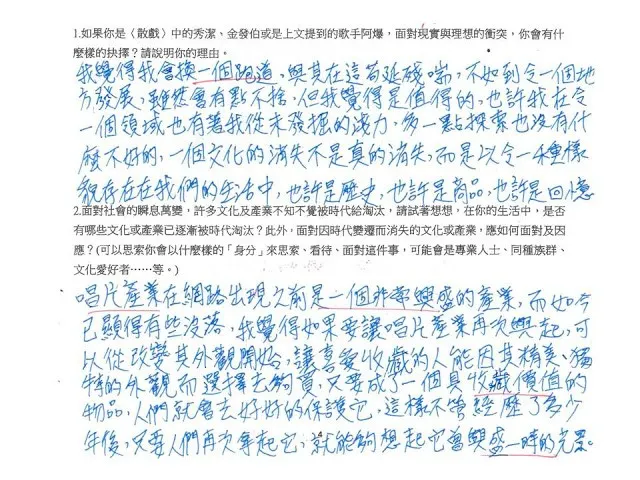 1.如果你是〈散戲〉中的秀潔、金發伯或是上文提到的歌手阿爆，面對現實與理想的衝突，你會有什
麼樣的抉擇？請說明你的理由。
我覺得我會換一個跑道，與其在這苟延殘喘，不如到令一個地
方發展，雖然會有點不捨，但我覺得是值得的，也許我在令
一個領域也有著我從未發掘的淺力，多一點探索也沒有什
麼不好的，一個文化的消失不是真的消失，而是以令一種樣
貌存在在我們的生活中，也許是歷史，也許是商品，也許是回憶
2.面對社會的瞬息萬變，許多文化及產業不知不覺被時代給淘汰，請試著想想，在你的生活中，是否
有哪些文化或產業已逐漸被時代淘汰？此外，面對因時代變遷而消失的文化或產業，應如何面對及因
應？(可以思索你會以什麼樣的「身分」來思索、看待、面對這件事，可能會是專業人士、同種族群、
文化愛好者……等。)
唱片產業在網路出現之前是一個非常興盛的產業，而如今
已顯得有些沒落，我覺得如果要讓唱片產業再次興起，可
以從改變其外觀開始，讓喜愛收藏的人能因其精美、獨
特的外觀而選擇去夠買，只要成了一個具收藏價值的
物品，人們就會去好好的保護它，這樣不管經歷了多少
年後，只要人們再次拿起它，就能夠想起它曾興盛一時的光景。